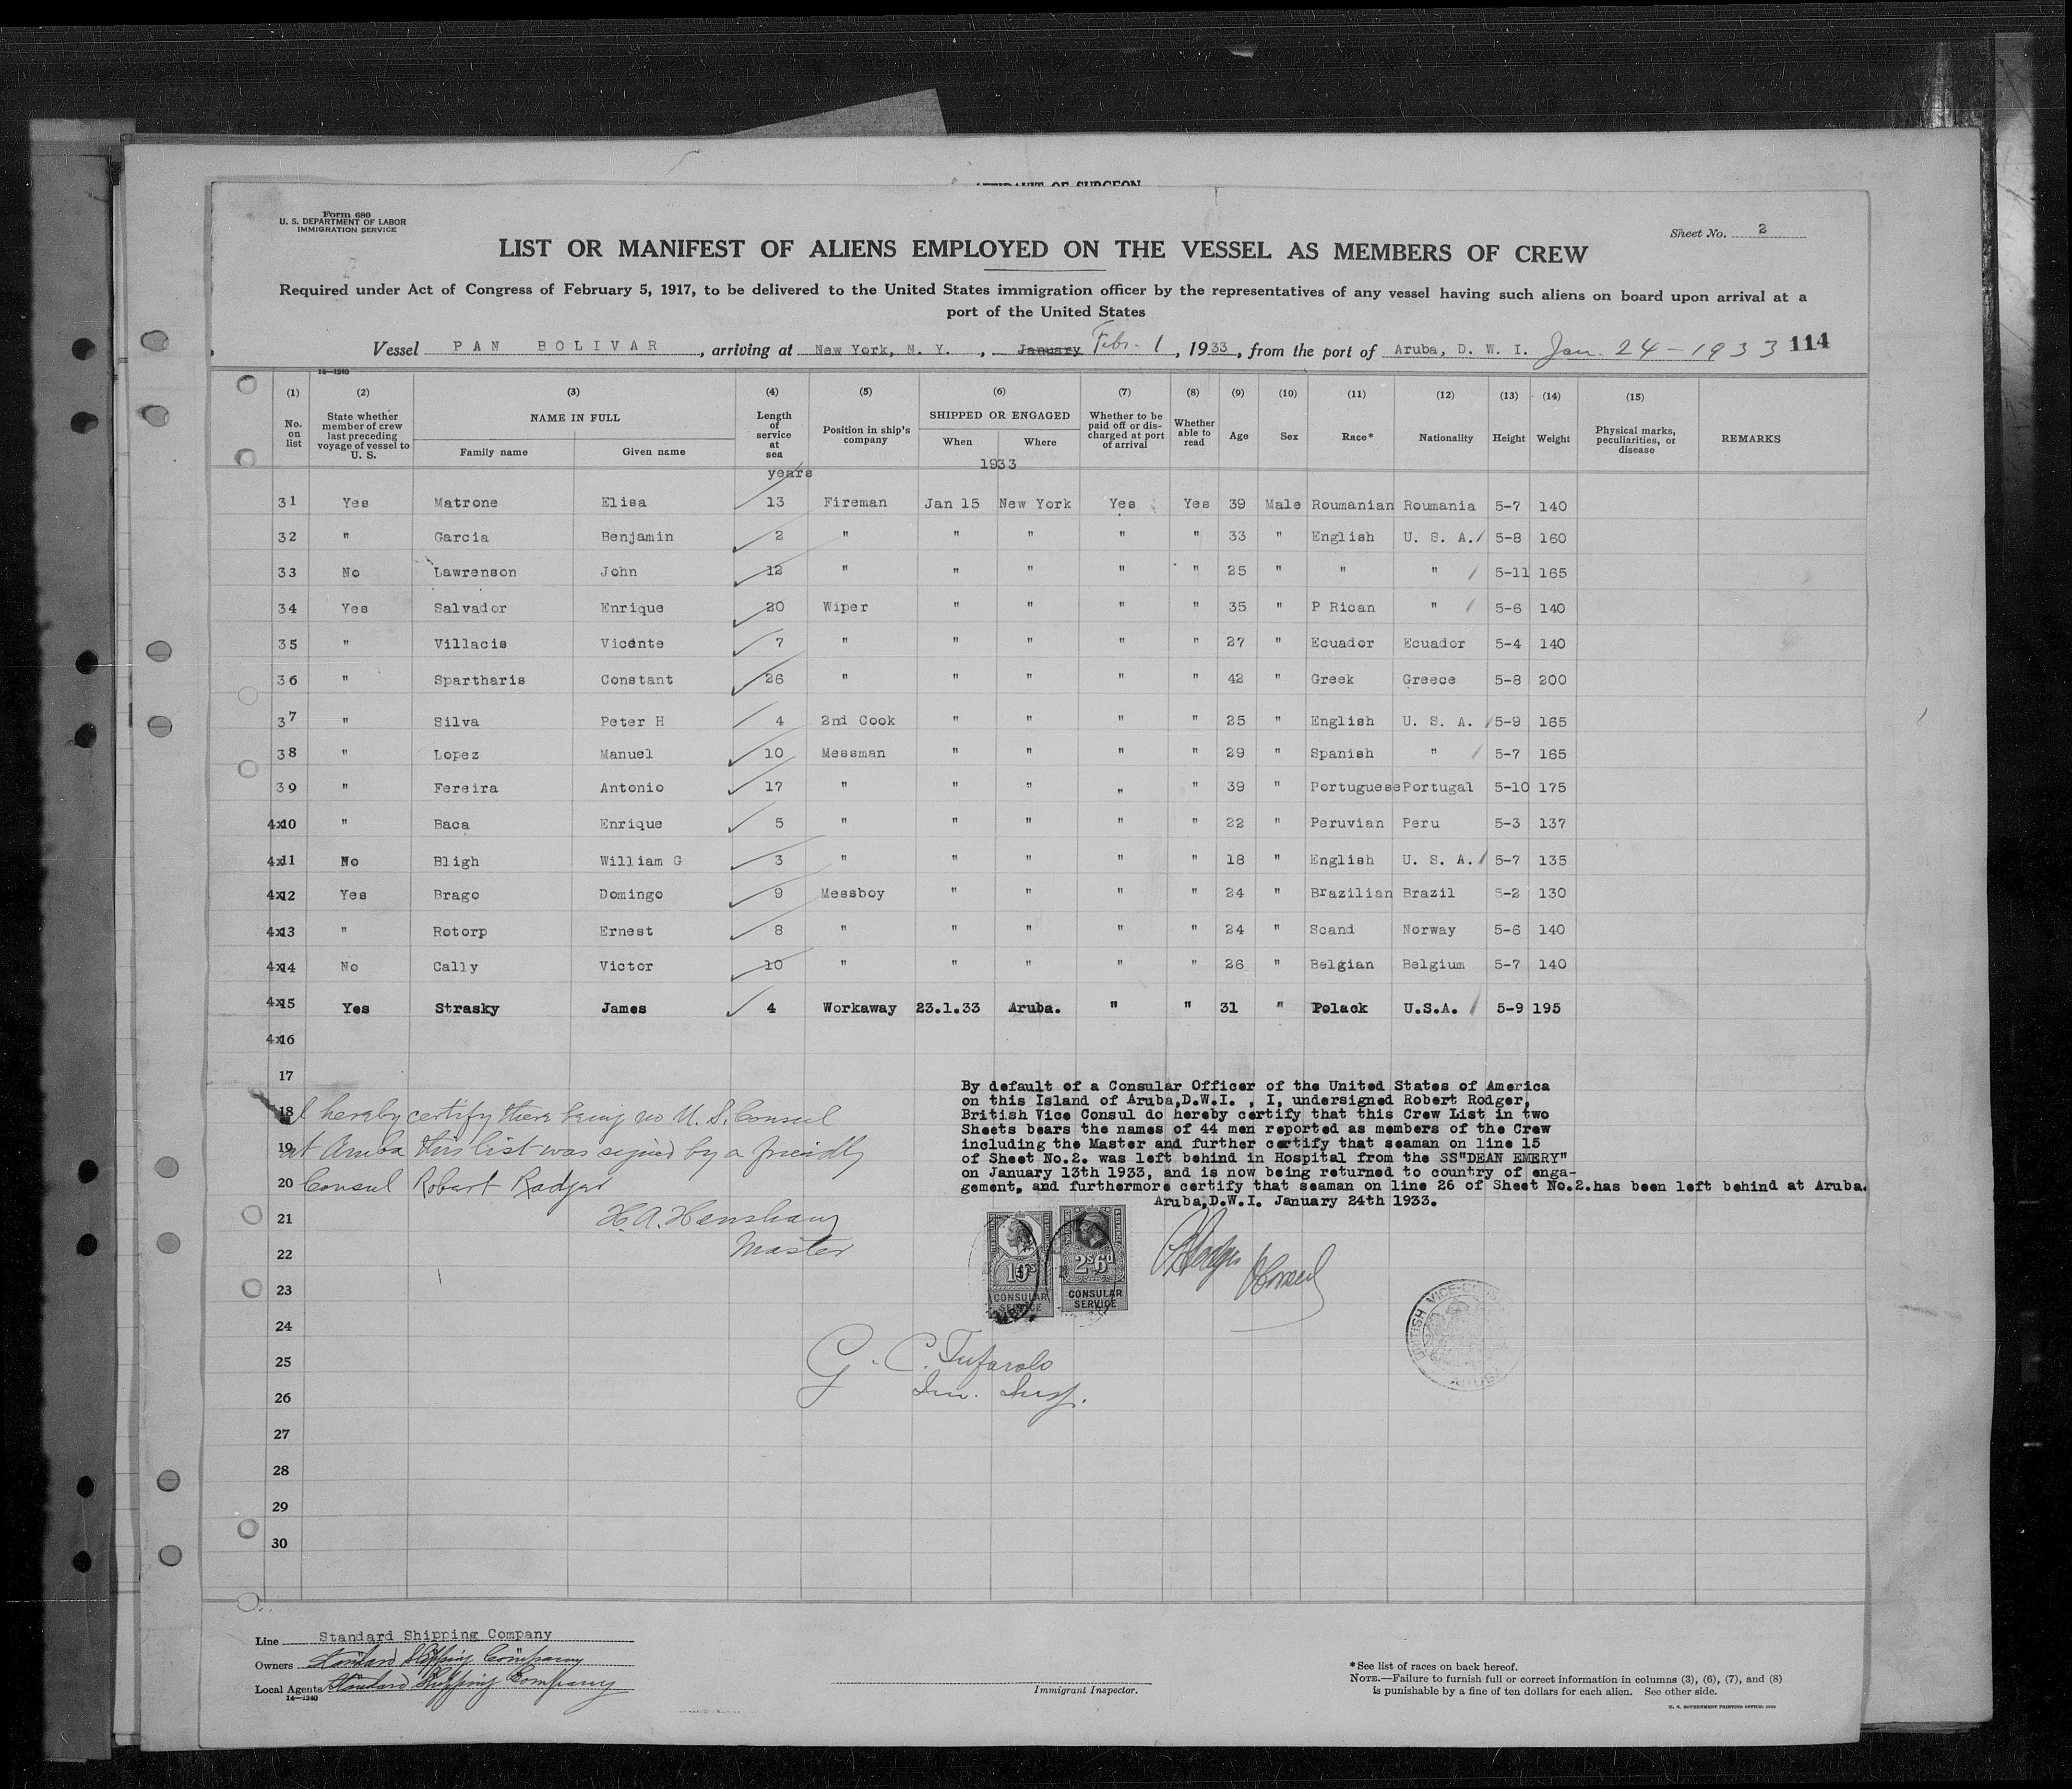 AFFIDAVIT OF SURGEON
Form 680
U. S. DEPARTMENT OF LABOR
IMMIGRATION SERVICE
Sheet No. 2
LIST OR MANIFEST OF ALIENS EMPLOYED ON THE VESSEL AS MEMBERS OF CREW
Required under Act of Congress of February 5, 1917, to be delivered to the United States immigration officer by the representatives of any vessel having such aliens on board upon arrival at a
port of the United States
Vessel PAN BOLIVAR, arriving at New York, N. Y., January Febr. 1, 1933, from the port of Aruba, D. W. I. Jan. 24-1933 114
14—1240
(1) (2) (3) (4) (5) (6) (7) (8) (9) (10) (11) (12) (13) (14) (15)
No. on list State whether member of crew last preceding voyage of vessel to U. S. NAME IN FULL Family name Given name Length of service at sea Position in ship's company SHIPPED OR ENGAGED When Where Whether to be paid off or discharged at port of arrival Whether able to read Age Sex Race* Nationality Height Weight Physical marks, peculiarities, or disease REMARKS
years 1933
31 Yes Matrone Elisa 13 Fireman Jan 15 New York Yes Yes 39 Male Roumanian Roumania 5-7 140
32 " Garcia Benjamin 2 " " " " " 33 " English U. S. A. 5-8 160
33 No Lawrenson John 12 " " " " " 25 " " " 5-11 165
34 Yes Salvador Enrique 20 Wiper " " " " 35 " P Rican " 5-6 140
35 " Villacis Vicente 7 " " " " " 27 " Ecuador Ecuador 5-4 140
36 " Spartharis Constant 26 " " " " " 42 " Greek Greece 5-8 200
37 " Silva Peter H 4 2nd Cook " " " " 25 " English U. S. A. 5-9 165
38 " Lopez Manuel 10 Messman " " " " 29 " Spanish " 5-7 165
39 " Fereira Antonio 17 " " " " " 39 " Portuguese Portugal 5-10 175
4x10 " Baca Enrique 5 " " " " " 22 " Peruvian Peru 5-3 137
4x11 No Bligh William G 3 " " " " " 18 " English U. S. A. 5-7 135
4x12 Yes Brago Domingo 9 Messboy " " " " 24 " Brazilian Brazil 5-2 130
4x13 " Rotorp Ernest 8 " " " " " 24 " Scand Norway 5-6 140
4x14 No Cally Victor 10 " " " " " 26 " Belgian Belgium 5-7 140
4x15 Yes Strasky James 4 Workaway 23.1.33 Aruba. " " 31 " Polack U.S.A. 5-9 195
4x16
17
18
19
20
21
22
23
24
25
26
27
28
29
30
I hereby certify there being no U. S. Consul
at Aruba this list was signed by a friendly
Consul Robert Rodger
H. A. Henshaw
Master
By default of a Consular Officer of the United States of America
on this Island of Aruba,D.W.I. , I, undersigned Robert Rodger,
British Vice Consul do hereby certify that this Crew List in two
Sheets bears the names of 44 men reported as members of the Crew
including the Master and further certify that seaman on line 15
of Sheet No.2. was left behind in Hospital from the SS"DEAN EMERY"
on January 13th 1933, and is now being returned to country of enga-
gement, and furthermore certify that seaman on line 26 of Sheet No.2.has been left behind at Aruba.
Aruba,D.W.I. January 24th 1933.
10s
CONSULAR
SERVICE
2s6d
CONSULAR
SERVICE
BRITISH VICE-
ARUBA
G. C. Tufarolo
Im. Insp.
Line Standard Shipping Company
Owners Standard Shipping Company
Local Agents Standard Shipping Company
14—1240
Immigrant Inspector.
*See list of races on back hereof.
NOTE.—Failure to furnish full or correct information in columns (3), (6), (7), and (8)
is punishable by a fine of ten dollars for each alien. See other side.
U. S. GOVERNMENT PRINTING OFFICE: